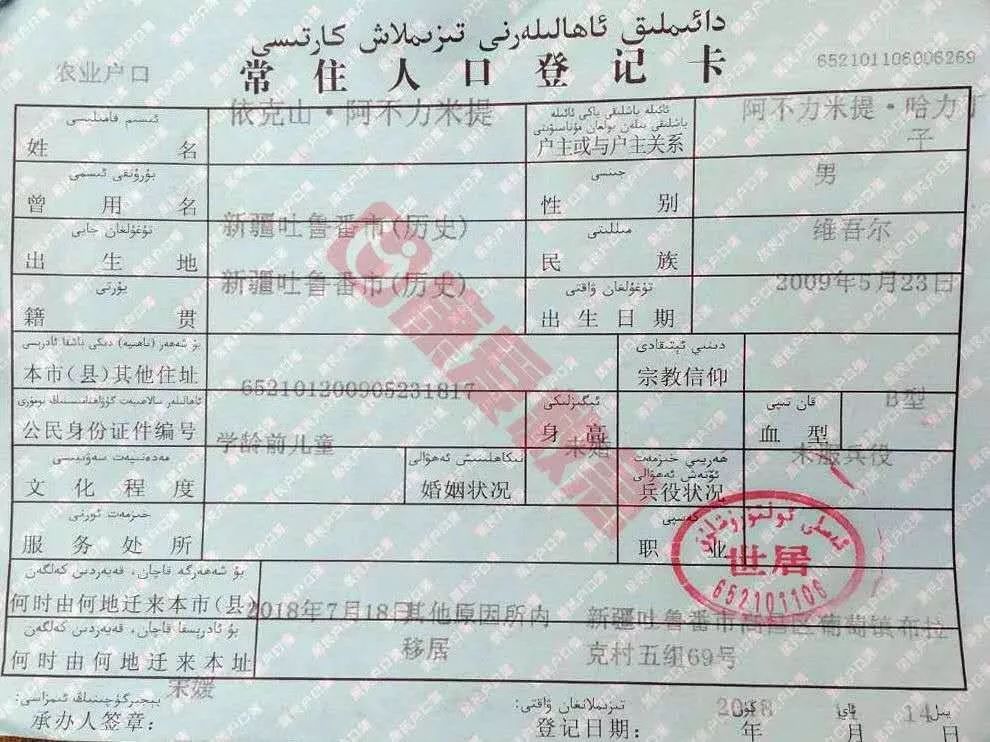 دائىملىق ئاھالىلەرنى تىزىملاش كارتىسى
农业户口 常住人口登记卡 652101106006269
ئىسىم فامىلىسى
姓名 依克山·阿不力米提
ئائىلە باشلىقى ياكى ئائىلە
باشلىقى بىلەن بولغان مۇناسىۋىتى
户主或与户主关系 阿不力米提·哈力
子
بۇرۇنقى ئىسمى
曾用名
جىنسى
性别 男
تۇغۇلغان جايى
出生地 新疆吐鲁番市(历史)
مىللىتى
民族 维吾尔
يۇرتى
籍贯 新疆吐鲁番市(历史)
تۇغۇلغان ۋاقتى
出生日期 2009年5月23日
本市(县)其他住址
دىنىي ئېتىقادى
宗教信仰
公民身份证件编号 652101200905231817
ئىگىزلىكى
身高
قان تىپى
血型 B型
مەدەنىيەت سەۋىيىسى
文化程度 学龄前儿童
نىكاھلىنىش ئەھۋالى
婚姻状况 未婚
ھەربىي خىزمەت
ئۆتەش ئەھۋالى
兵役状况 未服兵役
خىزمەت ئورنى
服务处所
كەسپى
职业
世居
652101106
بۇ شەھەرگە قاچان، قەيەردىن كەلگەن
何时由何地迁来本市(县) 2018年7月18日其他原因所内
移居
新疆吐鲁番市高昌区葡萄镇布拉
克村五组69号
بۇ ئادرېسقا قاچان، قەيەردىن كەلگەن
何时由何地迁来本址
宋媛
承办人签章:
تىزىملانغان ۋاقتى:
登记日期: 2018年 月14日